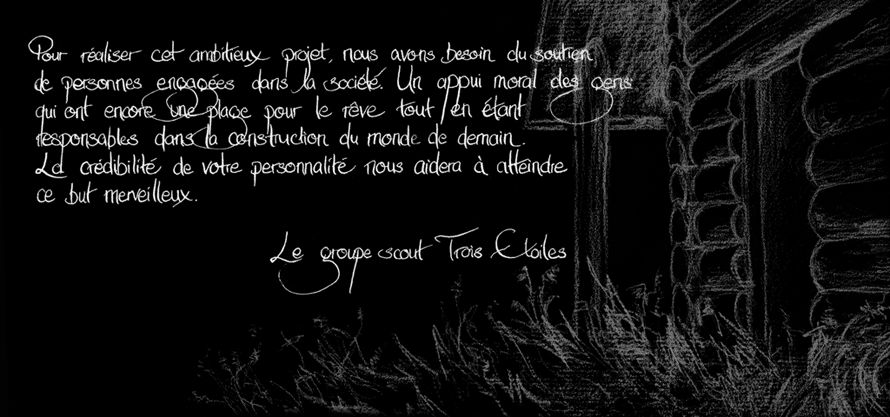 Pour réaliser cet ambitieux projet, nous avons besoin du soutien
de personnes engagées dans la société. Un appui moral des gens
qui ont encore une place pour le rêve tout en étant
responsables dans la construction du monde de demain.
La crédibilité de votre personnalité nous aidera à atteindre
ce but merveilleux.
Le groupe scout Trois Etoiles